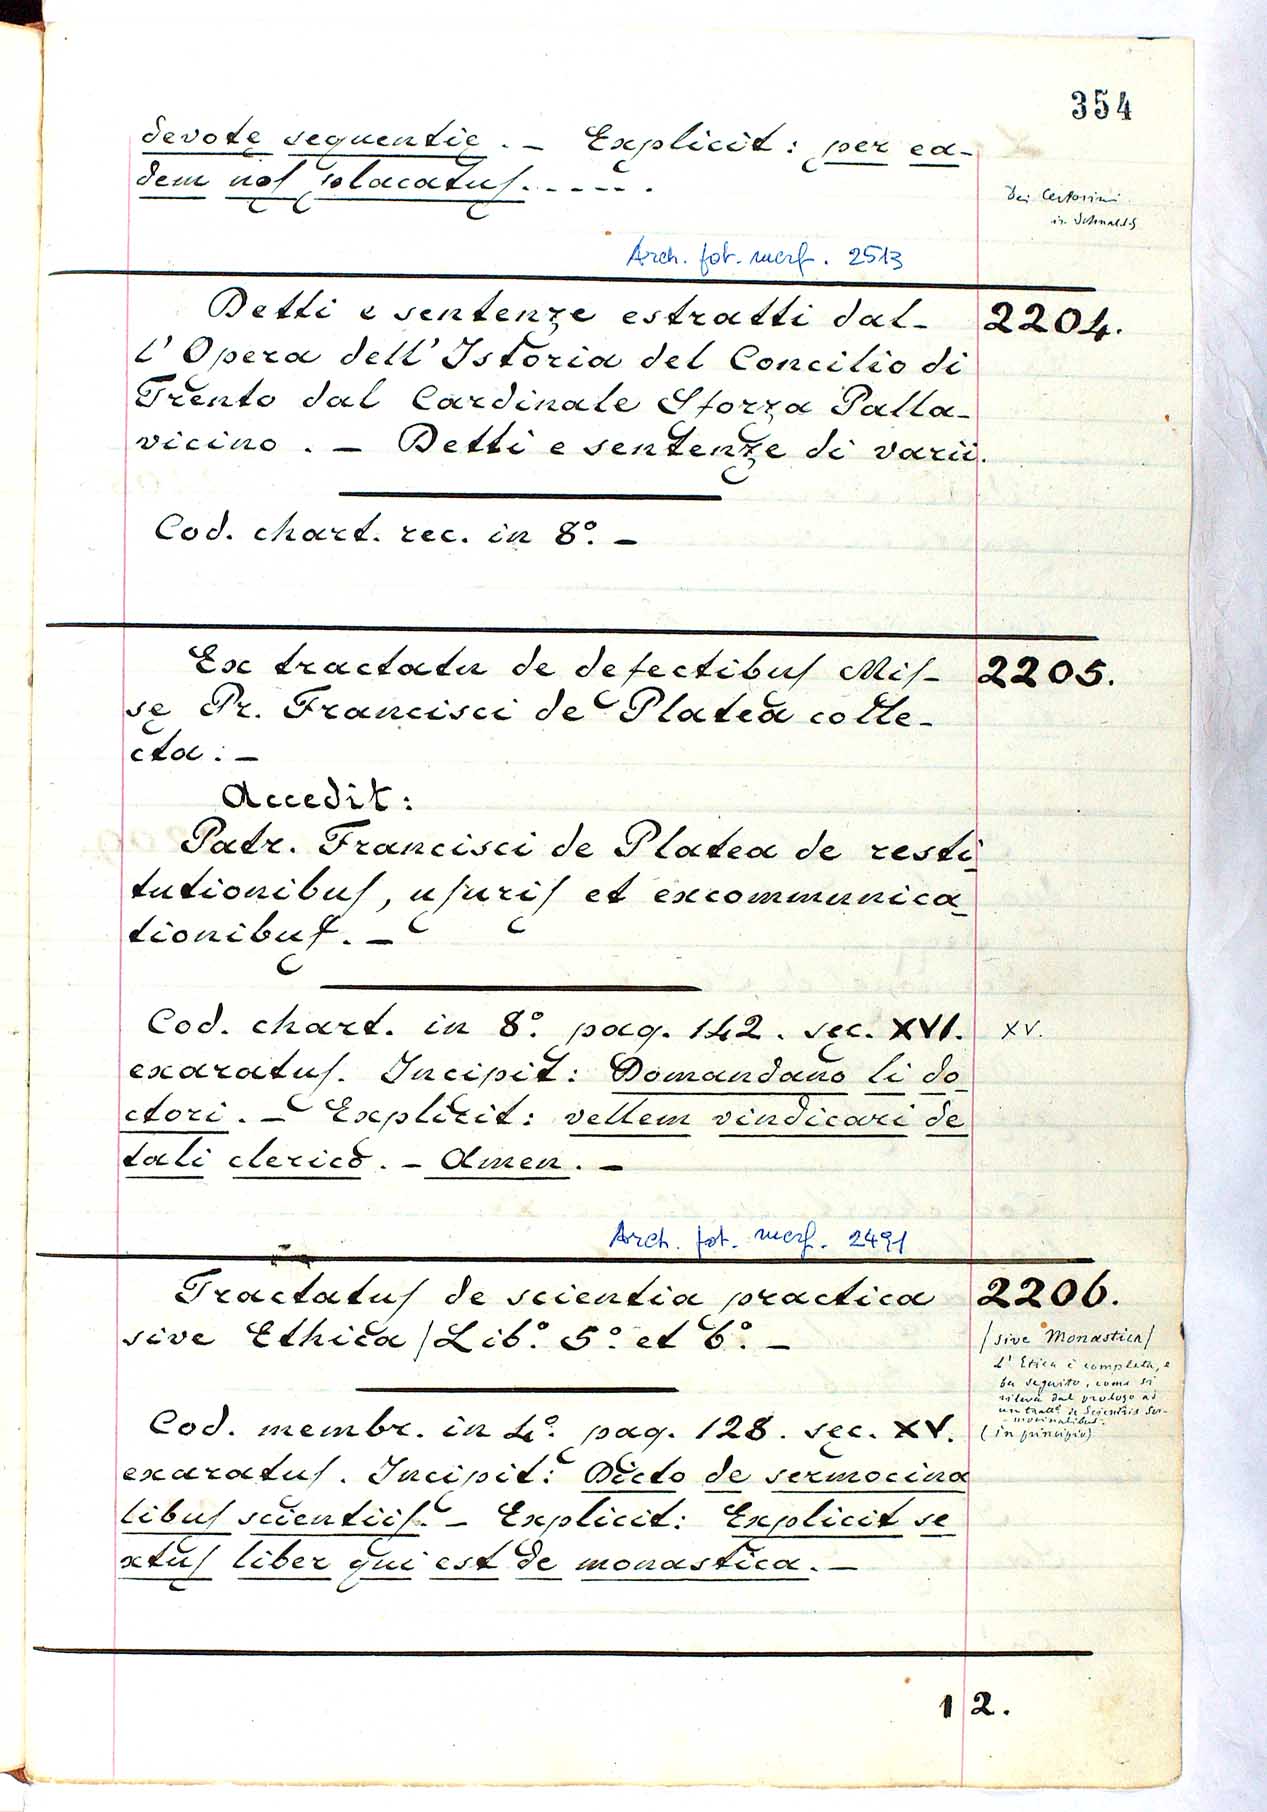 354
devotę sequentię. – Explicit: per ea-
dem nos placatus. . . . . .
Dei Certosini
in Schnals
Arch. fot. merf. 2513
Detti e sentenze estratti dal-
l'Opera dell'Istoria del Concilio di
Trento dal Cardinale Sforza Palla-
vicino. – Detti e sentenze di varii.
2204.
Cod. chart. rec. in 8º. –
Ex tractatu de defectibus Mis-
sę Pr. Francisci de Platea colle-
cta: –
2205.
Accedit:
Patr. Francisci de Platea de resti-
tutionibus, usuris et excommunica-
tionibus. –
Cod. chart. in 8º. pag. 142. sec. XVI.
XV.
exaratus. Incipit: Domandano li do-
ctori. – Explicit: vellem vindicari de
tali clerico. – Amen. –
Arch. fot. merf. 2491
Tractatus de scientia practica
sive Ethica / Lib.º 5.º et 6.º –
2206.
/sive Monastica/
L'Etica è completa, e
fu seguito, come si
rileva dal prologo ad
un tratt.º de Scientiis Ser-
-mocinalibus.
(in principio)
Cod. membr. in 4º. pag. 128. sec. XV.
exaratus. Incipit: Dicto de sermocina
libus scientiis. – Explicit: Explicit se
xtus liber qui est de monastica. –
12.